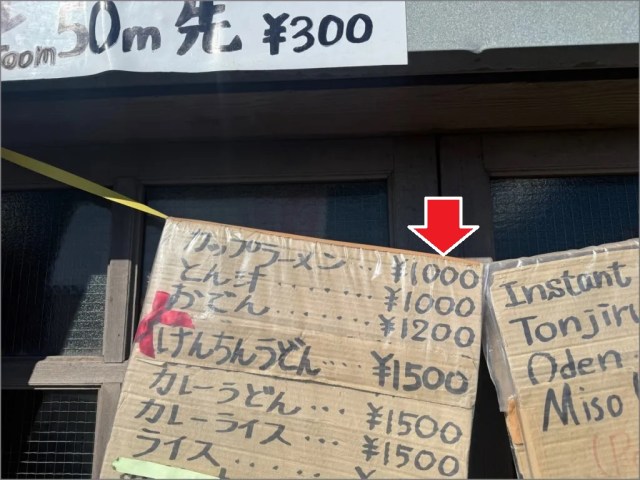 50m先 ¥300
room
カップラーメン… ¥1000
とん汁........ ¥1000
おでん....... ¥1200
けんちんうどん… ¥1500
カレーうどん… ¥1500
カレーライス… ¥1500
ライス… ¥
Instant
Tonjiru
Oden
Miso